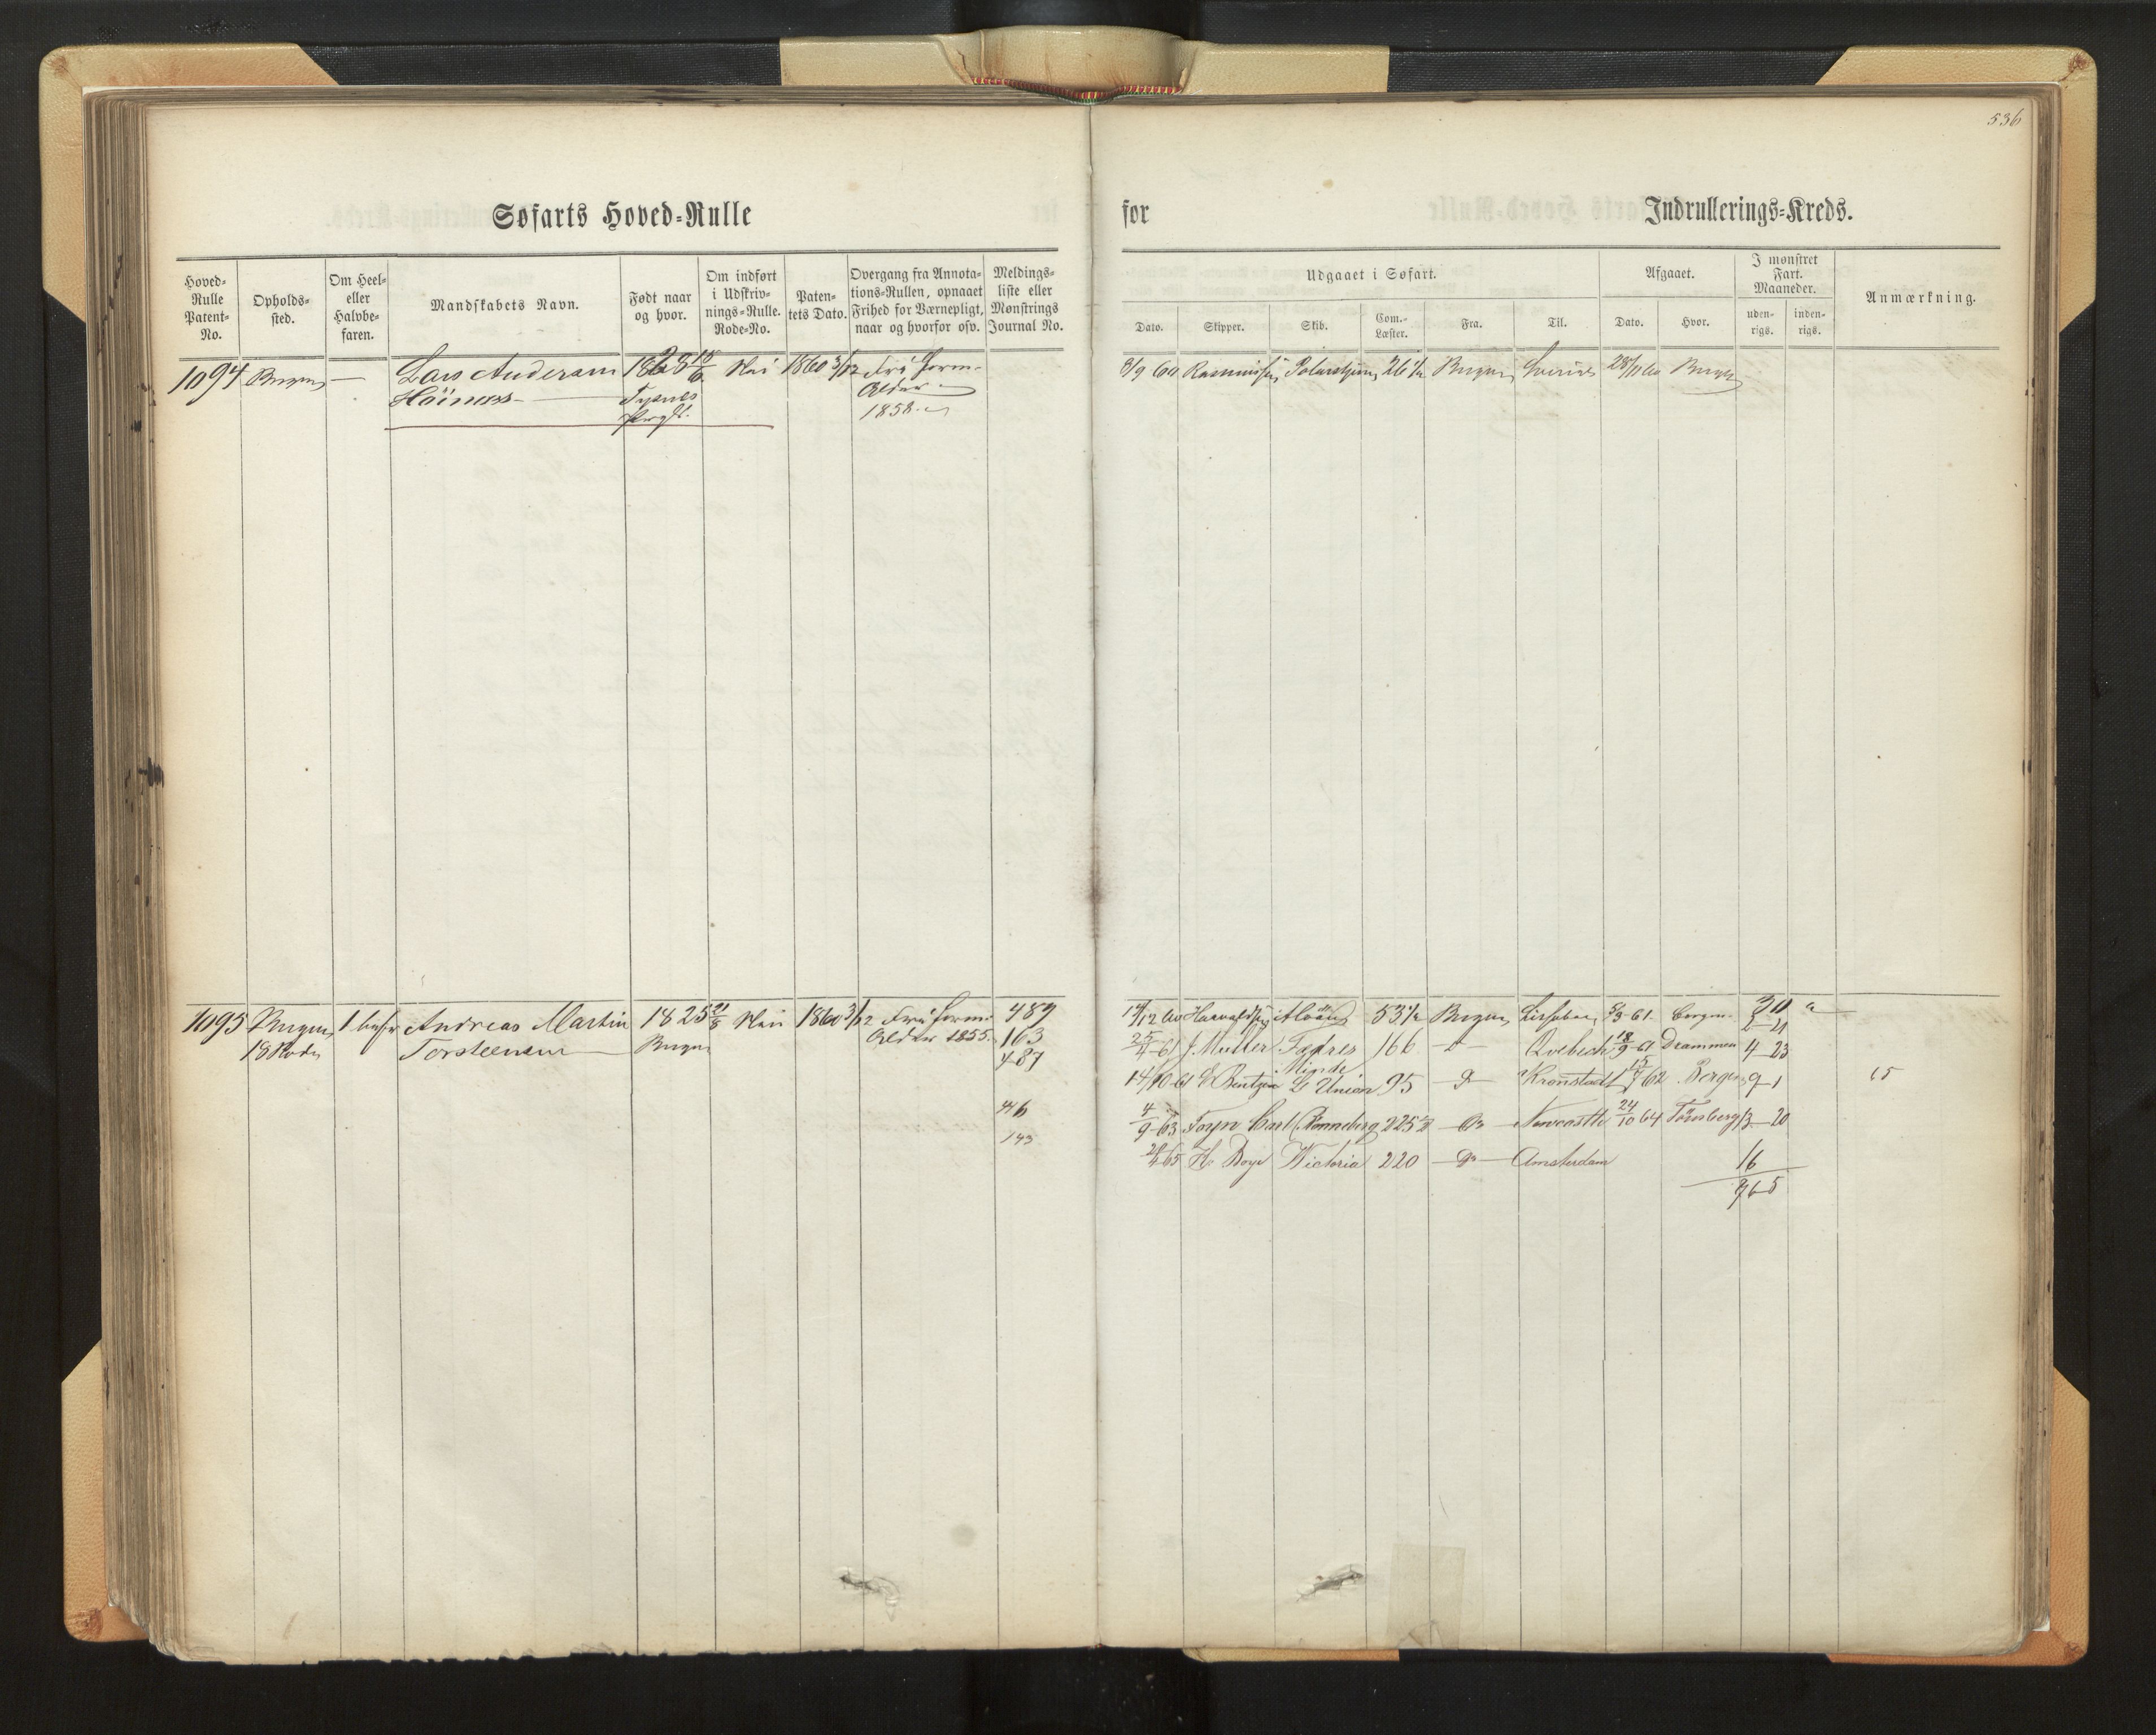 536
Søfarts Hoved-Rulle
for Indrullerings-Kreds.
Hoved-Rulle Patent-No.
Opholds-sted.
Om Heel- eller Halvbe-faren.
Mandskabets Navn.
Født naar og hvor.
Om indført i Udskriv-nings-Rulle. Rode-No.
Paten-tets Dato.
Overgang fra Annota-tions-Rullen, opnaaet Frihed for Værnepligt, naar og hvorfor osv.
Meldings-liste eller Mønstrings Journal No.
Udgaaet i Søfart.
Afgaaet.
I mønstret Fart. Maaneder.
Anmærkning.
Dato. Skipper. Skib. Com.-Læster. Fra. Til. Dato. Hvor. uden-rigs. inden-rigs.
1094 Bergen — Lars Andersen 18 Nei 1860 3/12 Fri form.
Tysnes Alder
Prgld. 1858.
9/9 60 Rasmussen Polarstjern 26 1/2 Bergen Sverige 60 Bergen
1095 Bergen Andreas Martin 1825 21/8 Nei 1860 3/12 Fri form. 489
18 Rode Torsteensen Bergen Alder 1855. 163
487
46
143
12 60 Haavald 53 1/2 Bergen 3-61 Bergen
2-21
25/4-61 J. Müller Fædres Minde 166 — Qvebech 18/9-61 Drammen 4-23
14/10-61 E Bentzen L'Union 95 — Kronstadt 15/7 62 Bergen 9-1
65
4/9-63 Foyn Carl Rønneberg 225 1/2 — Do — Newcastle 24/10 64 Tønsberg 13-20
65 H. Boye Wictoria 220 — Do — Amsterdam
16